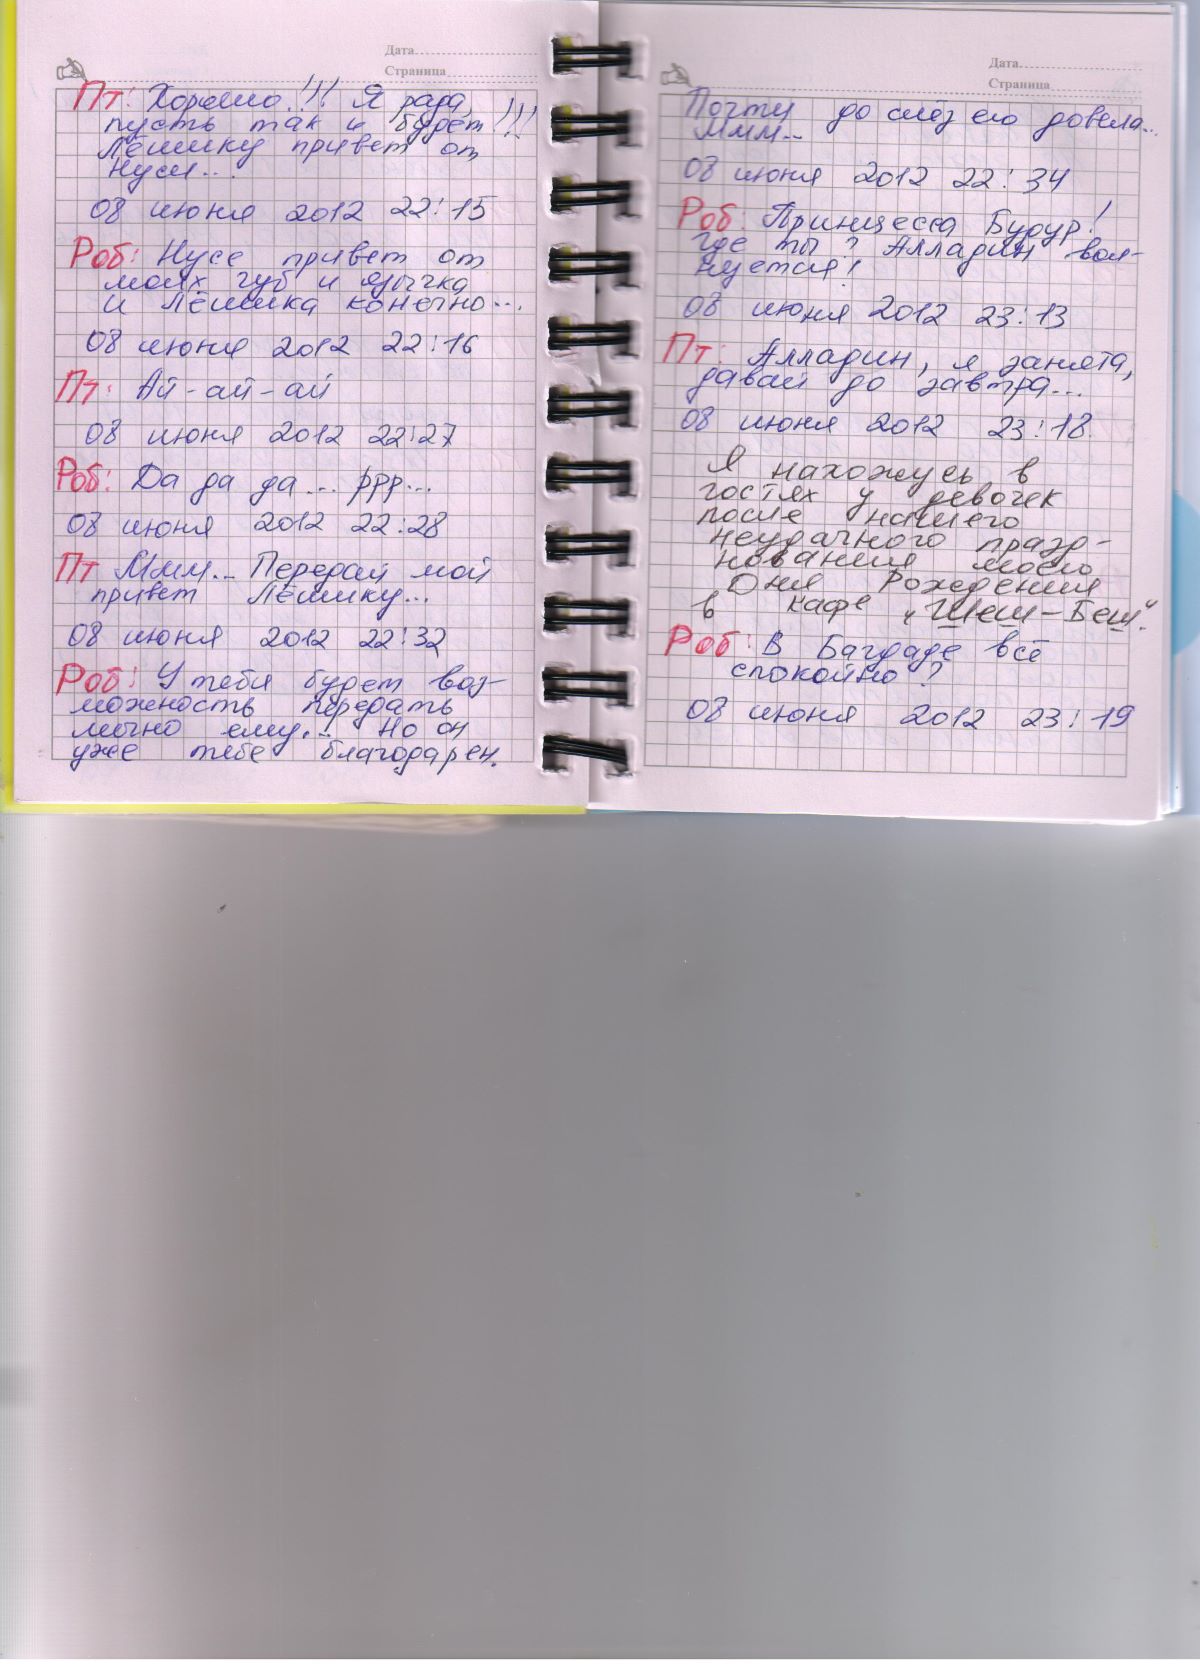 Дата
Страница
Пт: Хорошо!!! Я рада,
пусть так и будет!!!
Лёшику привет от
Нуси...
08 июня 2012 22:15
Роб: Нусе привет от
моих губ и язычка
и Лёшика конечно...
08 июня 2012 22:16
Пт: Ай-ай-ай
08 июня 2012 22:27
Роб: Да да да... ррр...
08 июня 2012 22:28
Пт Ммм... Передай мой
привет Лёшику...
08 июня 2012 22:32
Роб: У тебя будет воз-
можность передать
лично ему... Но он
уже тебе благодарен.
Дата
Страница
Почти до слёз его довела...
Ммм...
08 июня 2012 22:34
Роб: Принцесса Будур!
Где ты? Алладин вол-
нуется!
08 июня 2012 23:13
Пт: Алладин, я занята,
давай до завтра...
08 июня 2012 23:18.
Я нахожусь в
гостях у девочек
после нашего
неудачного празд-
нования моего
Дня Рождения
в кафе „Шеш-Беш".
Роб: В Багдаде всё
спокойно?
08 июня 2012 23:19